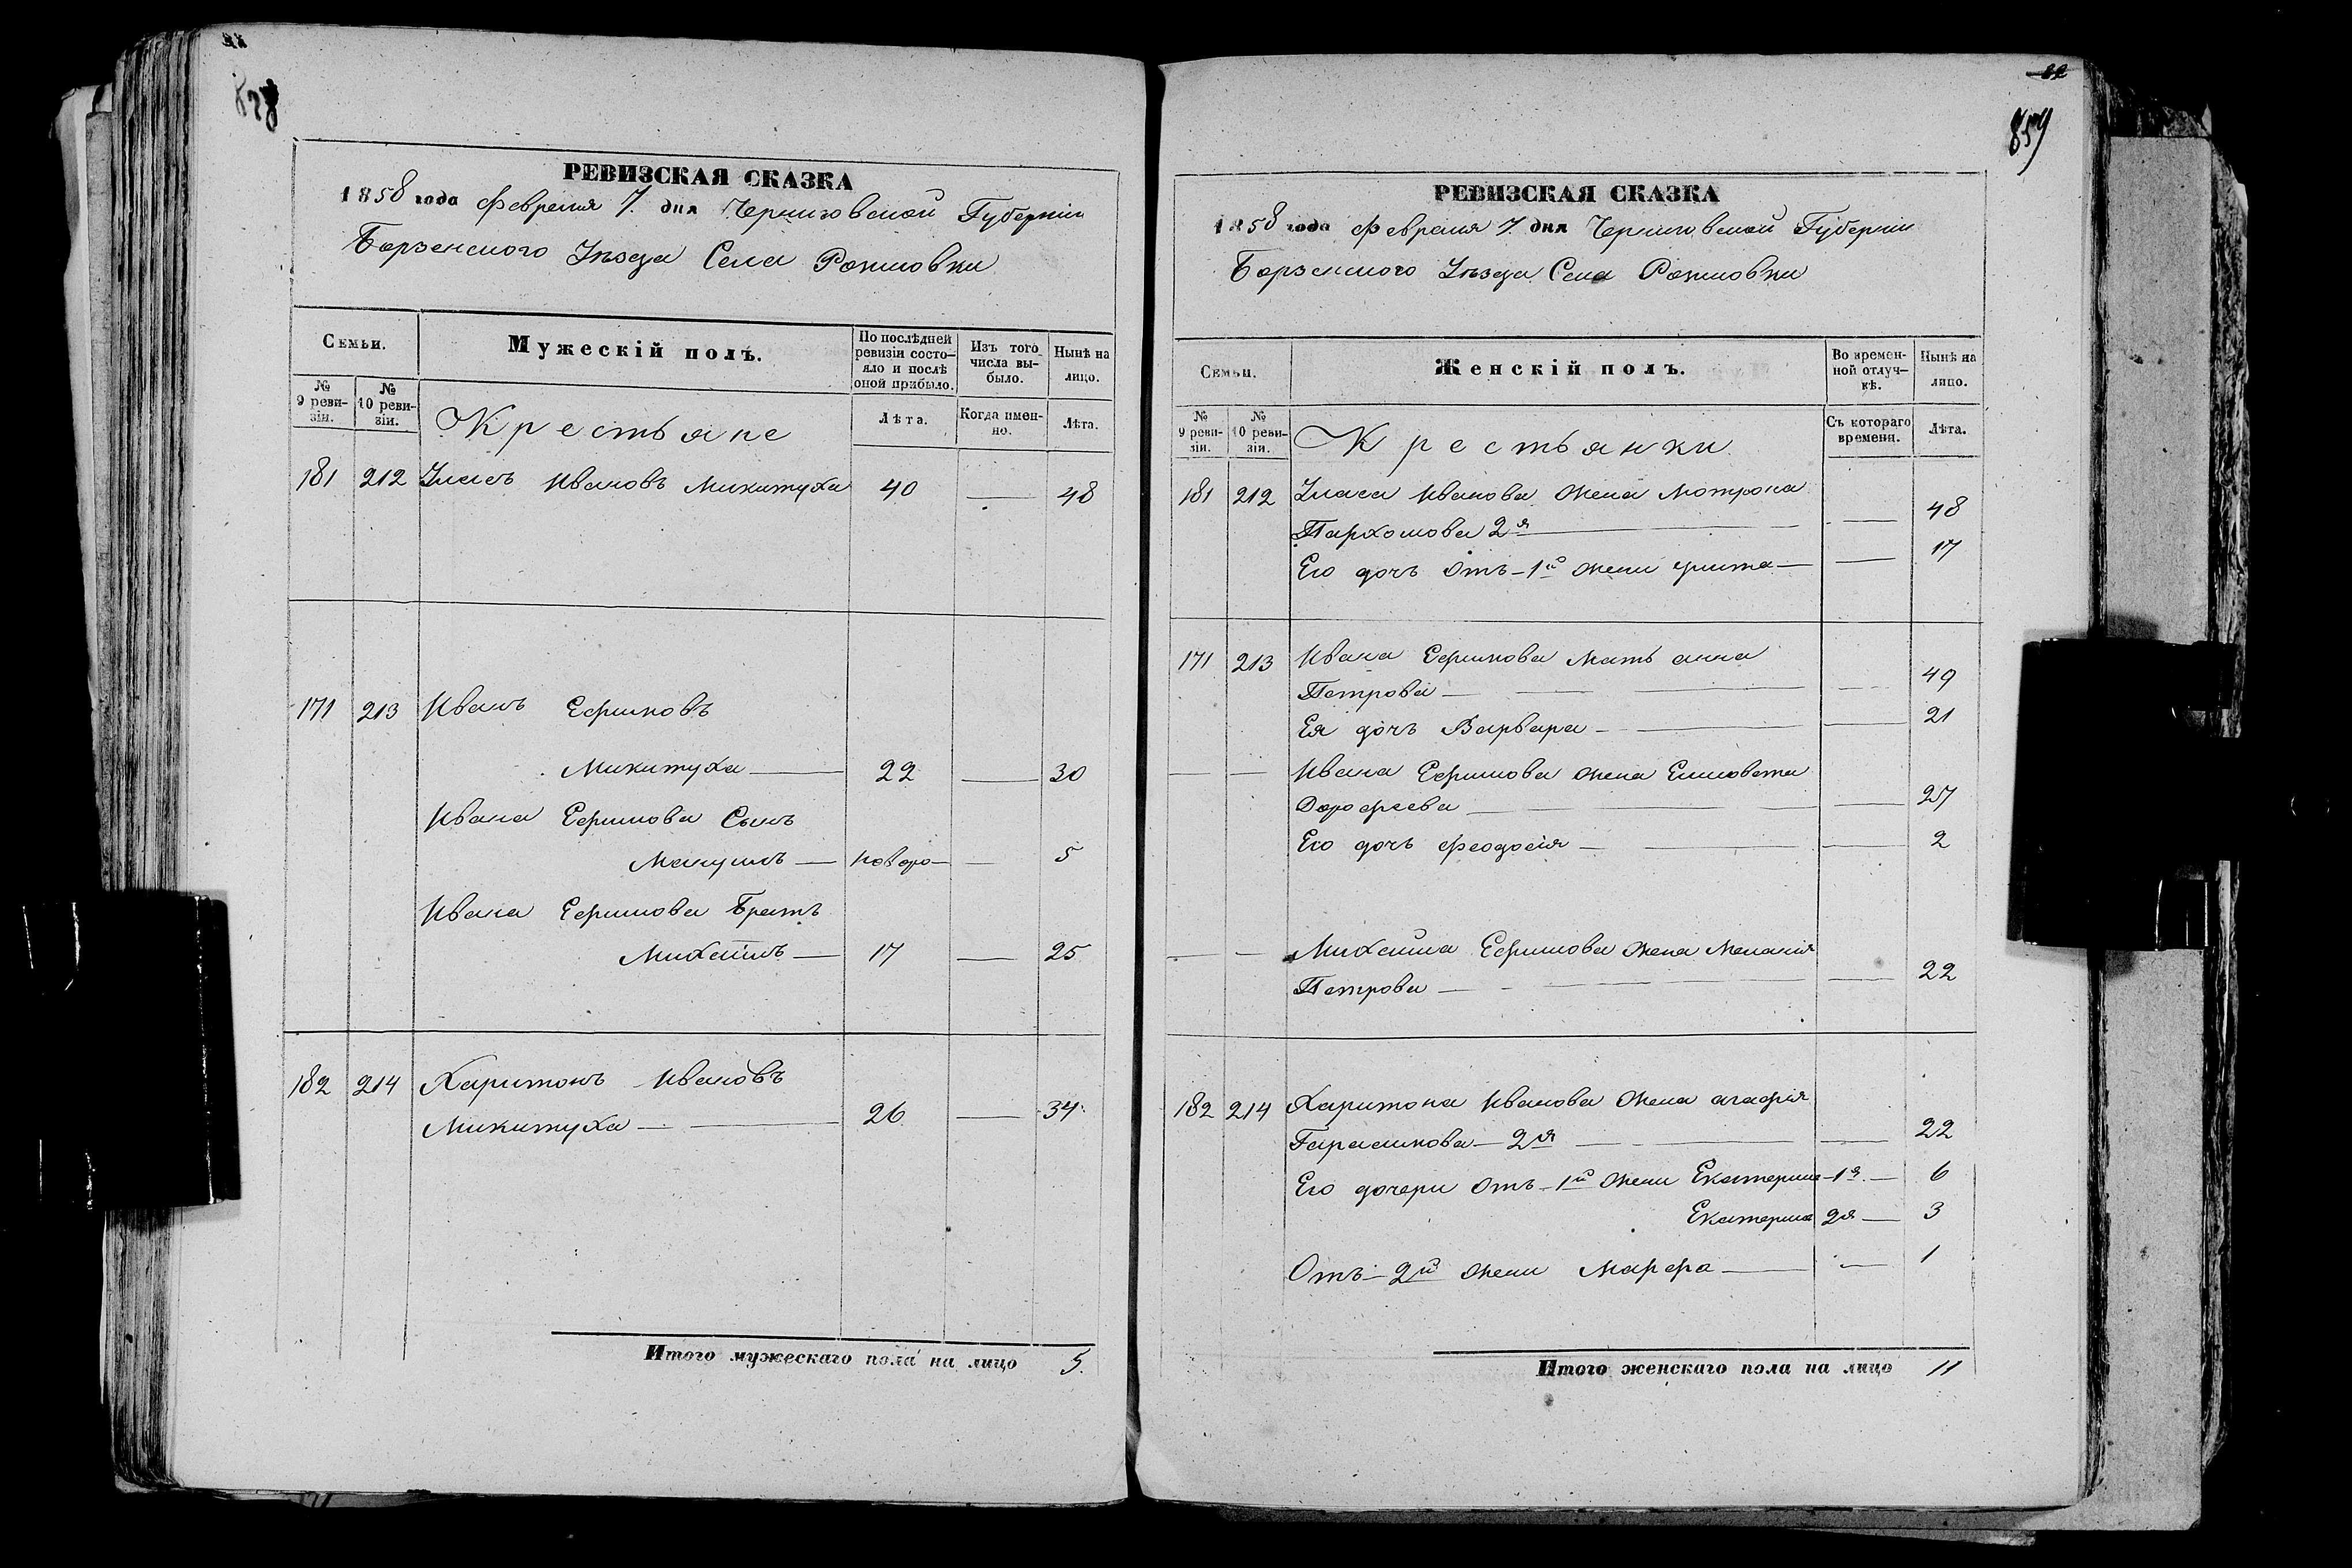 858
РЕВИЗСКАЯ СКАЗКА
1858 года Февраля 7. дня Черниговской Губерніи
Борзенского Уѣзда Села Рожновки
Семьи.
Мужескій полъ.
По послѣдней ревизіи состо-
яло и послѣ
оной прибыло.
Изъ того
числа вы-
было.
Нынѣ на
лицо.
№
9 реви-
зіи.
№
10 реви-
зіи.
Крестьяне
Лѣта.
Когда имен-
но.
Лѣта.
181 212 Уласъ Ивановъ Микитуха 40 — 48
171 213 Иванъ Ефимовъ
Микитуха — 22 — 30
Ивана Ефимова Сынъ
— новоро — — 5
Ивана Ефимова Братъ
Михайлъ — 17 — 25
182 214 Харитонъ Ивановъ
Микитуха — 26 — 34
Итого мужескаго пола на лицо 5.
859
РЕВИЗСКАЯ СКАЗКА
1858 года Февраля 7. дня Черниговской Губерніи
Борзенского Уѣзда Села Рожновки
Семьи.
Женскій полъ.
Во времен-
ной отлуч-
кѣ.
Нынѣ на
лицо.
№
9 реви-
зіи.
№
10 реви-
зіи.
Крестьянки
Съ котораго
времени.
Лѣта.
181 212 Уласа Иванова жена Мотрона
Пархомова 2я — — 48
Его дочь отъ 1й жени — — 17
171 213 Ивана Ефимова мать анна
Петрова — — 49
Ея дочь Варвара — — 21
— — Ивана Ефимова жена Елисовета
Дорофеева — — 27
Его дочь феодосія — — 2
— — Михайла Ефимова жена Меланія
Петрова — — 22
182 214 Харитона Иванова жена агафія
Гарасимова 2я — — 22
Его дочери отъ 1й жени Екатерина 1я — 6
Екатерина 2я — 3
Отъ 2й жени Марфа — — 1
Итого женскаго пола на лицо 11